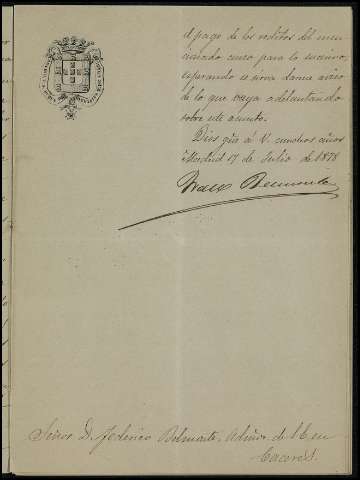 el pago de los reditos del men-
cionado censo para lo sucesivo,
esperando se sirva darme aviso
de lo que vaya adelantando
sobre este asunto.
Dios gue á V. muchos años
Madrid 17 de Julio de 1878
Señor D. Federico Belmonte. Admor. de S E en
Caceres.